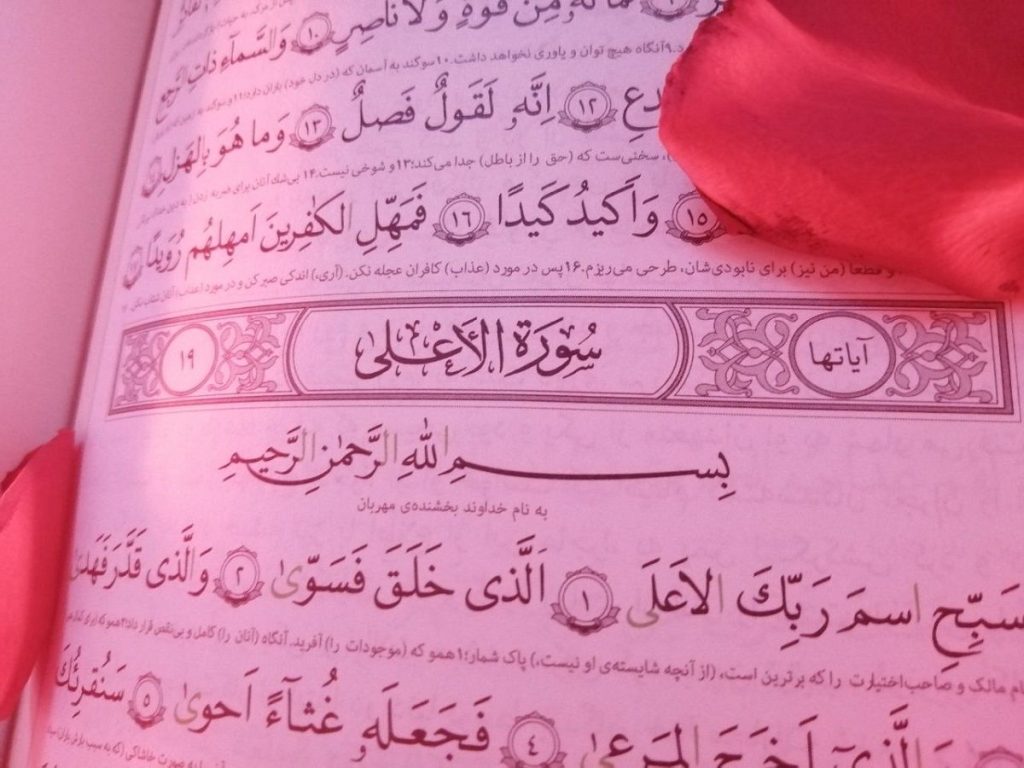 فَمَالَهُ مِن قُوَّةٍ وَلَا نَاصِرٍ ١٠ وَالسَّمَآءِ ذَاتِ الرَّجْعِ
آنگاه هیچ توان و یاوری نخواهد داشت.۱۰ سوگند به آسمان که (در دل خود) باران دارد؛۱۱ و سوگند به زمین که
١٢ اِنَّهُ لَقَولٌ فَصلٌ ١٣ وَمَا هُوَ بِالهَزلِ
سخنی‌ست که (حق را از باطل) جدا می‌کند؛۱۳ و شوخی نیست.۱۴ بی‌شک آنان برای ضربه
١٥ وَاَکیدُ کَیدًا ١٦ فَمَهِّلِ الکٰفِرینَ اَمهِلهُم رُوَیدًا
و قطعاً (من نیز) برای نابودی‌شان، طرحی می‌ریزم.۱۶ پس در مورد (عذاب) کافران عجله نکن. (آری،) اندکی صبر کن و در مورد (عذاب) آنان شتاب نکن.
آیاتها سُورَةُ الأَعْلىٰ ١٩
بِسمِ اللّٰهِ الرَّحمٰنِ الرَّحیمِ
به نام خداوند بخشنده‌ی مهربان
سَبِّحِ اسمَ رَبِّکَ الاَعلَی ١ اَلَّذی خَلَقَ فَسَوّیٰ ٢ وَالَّذی قَدَّرَ فَهَدیٰ
نام مالک و صاحب‌اختیارت را که برترین است، (از آنچه شایسته‌ی او نیست،) پاک شمار؛۱ همو که (موجودات را) آفرید. آنگاه (آنان را) کامل و بی‌نقص قرار داد؛۲ همو که
وَالَّذیٓ اَخرَجَ المَرعیٰ ٤ فَجَعَلَهُ غُثآءً اَحویٰ ٥ سَنُقرِئُکَ
به صورت خاشاکی (که به سبب